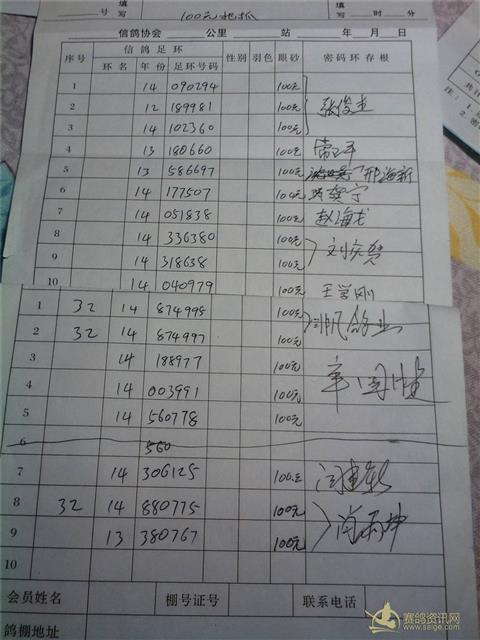 号 填写 100元把抓 填写 时 分
信鸽协会 公里 站 年 月 日
序号 信鸽足环 性别 羽色 眼砂 密码环存根
环名 年份 足环号码
1 14 090294 100元
2 12 189981 100元 张俊杰
3 14 102360 100元
4 13 180660 100元
5 13 586697 100元 邢海新
6 14 177507 100元
7 14 051838 100元 赵海龙
8 14 336380 100元
9 14 318638 100元 刘庆贺
10 14 040979 100元 王学刚
1 32 14 874998 100元
2 32 14 874997 100元
3 14 188977 100元
4 14 003991 100元
5 14 560778 100元
6 560
7 14 306125 100元
8 32 14 880775 100元
9 13 380767 100元
10
会员姓名 棚号证号 联系电话
鸽棚地址
赛鸽资讯网
www.saige.com